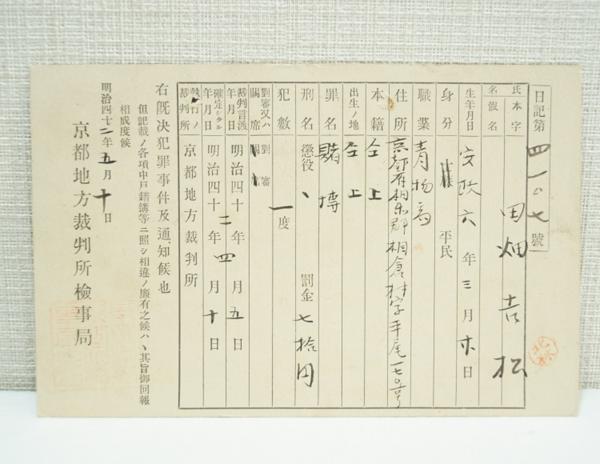 日記第四一〇七號
氏名 本字 田畑吉松
假名
生年月日 安政六年三月廿日
身分 平民
職業 青物商
住所 京都府相楽郡相倉村字平尾一七〇号
本籍 仝上
出生ノ地 仝上
罪名 賭博
刑名 懲役、罰金七拾円
犯數 一度
對審又ハ闕席 對審
裁判言渡年月日 明治四十二年四月五日
確定シタル年月日 明治四十二年四月十日
裁判所 京都地方裁判所
右既決犯罪事件及通知候也
但記載ノ各項中戸籍簿等ニ照シ相違ノ廉有之候ハ、其旨御回報
相成度候
明治四十二年五月十日
京都地方裁判所檢事局